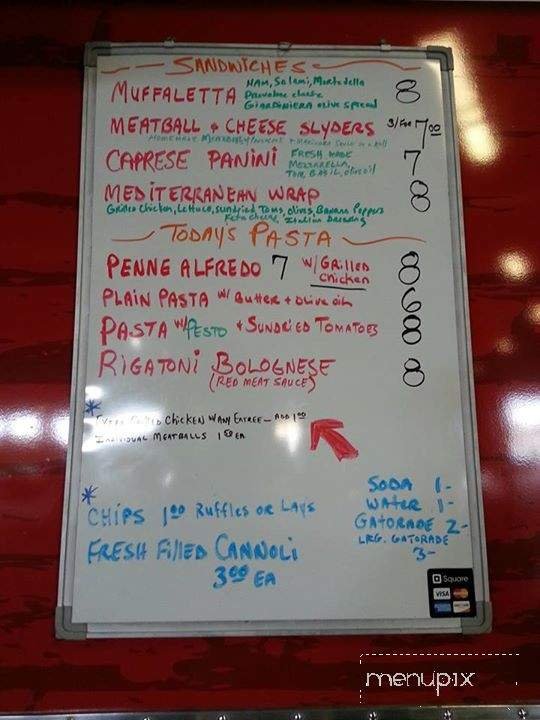 SANDWICHES
MUFFALETTA HAM, Salami, Mortadella 8
Provolone cheese
GIARDINIERA olive spread
MEATBALL & CHEESE SLYDERS 3/For 7.00
CAPRESE PANINI FRESH MADE 7
MOZZARELLA,
TOM, BASIL, olive oil
MEDITERRANEAN WRAP 8
Grilled Chicken, Lettuce, Sundried Toms, olives, Banana Peppers
Feta cheese, Italian Dressing
TODAY'S PASTA
PENNE ALFREDO 7 W/GRILLED 8
Chicken
PLAIN PASTA W/ Butter + Olive oil 6
PASTA W/PESTO + SUNDRIED TOMATOES 8
RIGATONI BOLOGNESE 8
(RED MEAT SAUCE)
* Chicken W/ANY ENTREE - ADD 1.00
INDIVIDUAL MEATBALLS 1.50 EA
* CHIPS 1.00 Ruffles or Lays
SODA 1-
WATER 1-
GATORADE 2-
LRG. GATORADE
3-
FRESH Filled CANNOLI
3.00 EA
Square
VISA
menupix